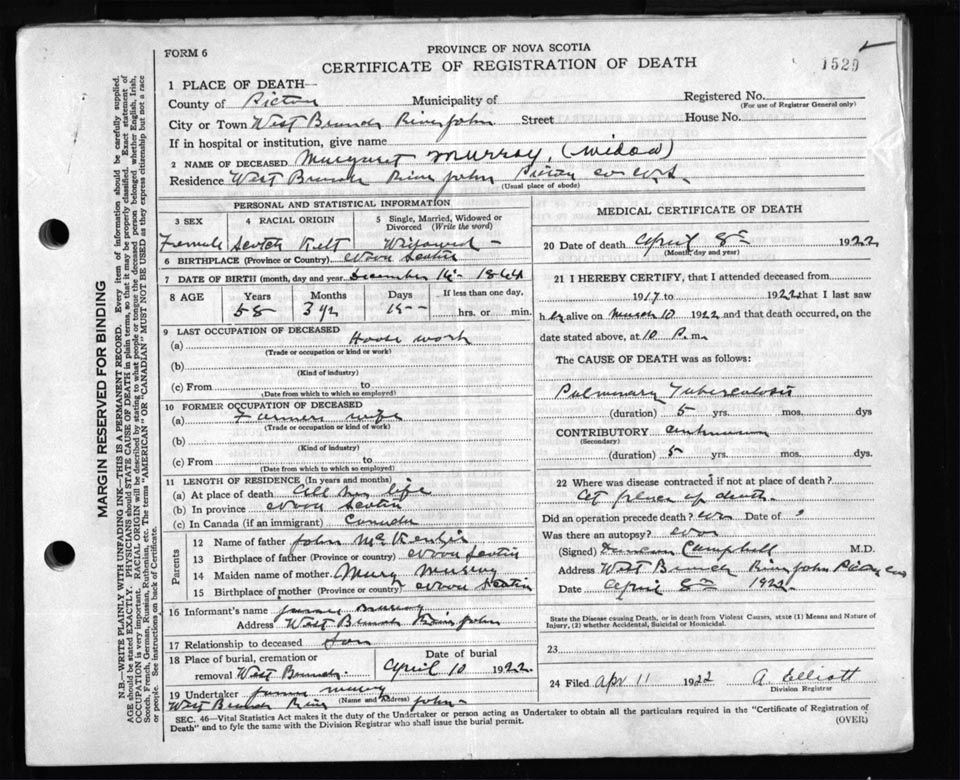 FORM 6
PROVINCE OF NOVA SCOTIA
CERTIFICATE OF REGISTRATION OF DEATH
1529
1 PLACE OF DEATH—
County of Pictou Municipality of Registered No.
(For use of Registrar General only)
City or Town West Branch River John Street House No.
If in hospital or institution, give name
2 NAME OF DECEASED Margaret Murray, (widow)
Residence West Branch River John Pictou Co N.S.
(Usual place of abode)
PERSONAL AND STATISTICAL INFORMATION
3 SEX 4 RACIAL ORIGIN 5 Single, Married, Widowed or Divorced (Write the word)
Female Scotch Kelt Widowed
6 BIRTHPLACE (Province or Country) Nova Scotia
7 DATE OF BIRTH (month, day and year) December 14 1864
8 AGE Years Months Days If less than one day,
58 3 15 hrs. or min.
9 LAST OCCUPATION OF DECEASED
(a) House work
(Trade or occupation or kind or work)
(b)
(Kind of industry)
(c) From to
(Date from which to which so employed)
10 FORMER OCCUPATION OF DECEASED
(a) Farmers wife
(Trade or occupation or kind of work)
(b)
(Kind of industry)
(c) From to
(Date from which to which so employed)
11 LENGTH OF RESIDENCE (In years and months)
(a) At place of death All her life
(b) In province Nova Scotia
(c) In Canada (if an immigrant) Canada
Parents
12 Name of father John McKenzie
13 Birthplace of father (Province or country) Nova Scotia
14 Maiden name of mother Mary Murray
15 Birthplace of mother (Province or country) Nova Scotia
16 Informant's name James Murray
Address West Branch River John
17 Relationship to deceased Son
18 Place of burial, cremation or removal West Branch
Date of burial
April 10 1922
19 Undertaker James Murray
(Name and Address)
West Branch River John
MEDICAL CERTIFICATE OF DEATH
20 Date of death April 8th 1922
(Month, day and year)
21 I HEREBY CERTIFY, that I attended deceased from
1917 to 1922 that I last saw
her alive on March 10 1922 and that death occurred, on the
date stated above, at 10 P. m.
The CAUSE OF DEATH was as follows:
Pulmonary Tuberculosis
(duration) 5 yrs. mos. dys
CONTRIBUTORY unknown
(Secondary)
(duration) 5 yrs. mos. dys.
22 Where was disease contracted if not at place of death?
At place of death.
Did an operation precede death? No Date of ?
Was there an autopsy? No
(Signed) Duncan Campbell M.D.
Address West Branch River John Pictou Co
Date April 8th 1922
State the Disease causing Death, or in death from Violent Causes, state (1) Means and Nature of Injury, (2) whether Accidental, Suicidal or Homicidal.
23
24 Filed Apr 11 1922 A. Elliott
Division Registrar
SEC. 46—Vital Statistics Act makes it the duty of the Undertaker or person acting as Undertaker to obtain all the particulars required in the "Certificate of Registration of
Death" and to fyle the same with the Division Registrar who shall issue the burial permit.
(OVER)
MARGIN RESERVED FOR BINDING
N.B.—WRITE PLAINLY WITH UNFADING INK—THIS IS A PERMANENT RECORD. Every item of information should be carefully supplied.
AGE should be stated EXACTLY. PHYSICIANS should STATE CAUSE OF DEATH in plain terms, so that it may be properly classified. Exact statement of
OCCUPATION is very important. RACIAL ORIGIN will be described by stating to what people or tongue the deceased person belonged whether English, Irish,
Scotch, French, German, Russian, Ruthenian, etc. The terms "AMERICAN" or "CANADIAN" MUST NOT BE USED as they express citizenship but not a race
or people. See instructions on back of Certificate.